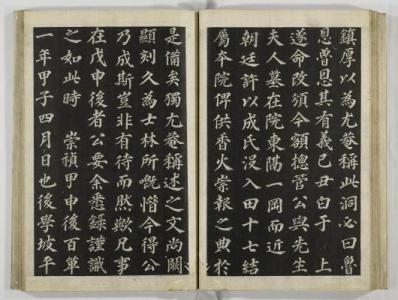 鎮厚以為尤菴稱此洞必曰魯
恩曾恩其有義己丑白于 上
遂命改須今額摠管公與先生
夫人墓在院東隅一岡而近
朝廷許以成氏沒入田十七結
屬本院俾供香火崇報之典於
是備矣獨尤菴稱述之文尚闕
顯刻久為士林所慨惜今得公
乃成斯豈非有待而然歟凡事
在戊申後者公要余悉錄謹識
之如此時 崇禎甲申後百單
一年甲子四月日也後學坡平